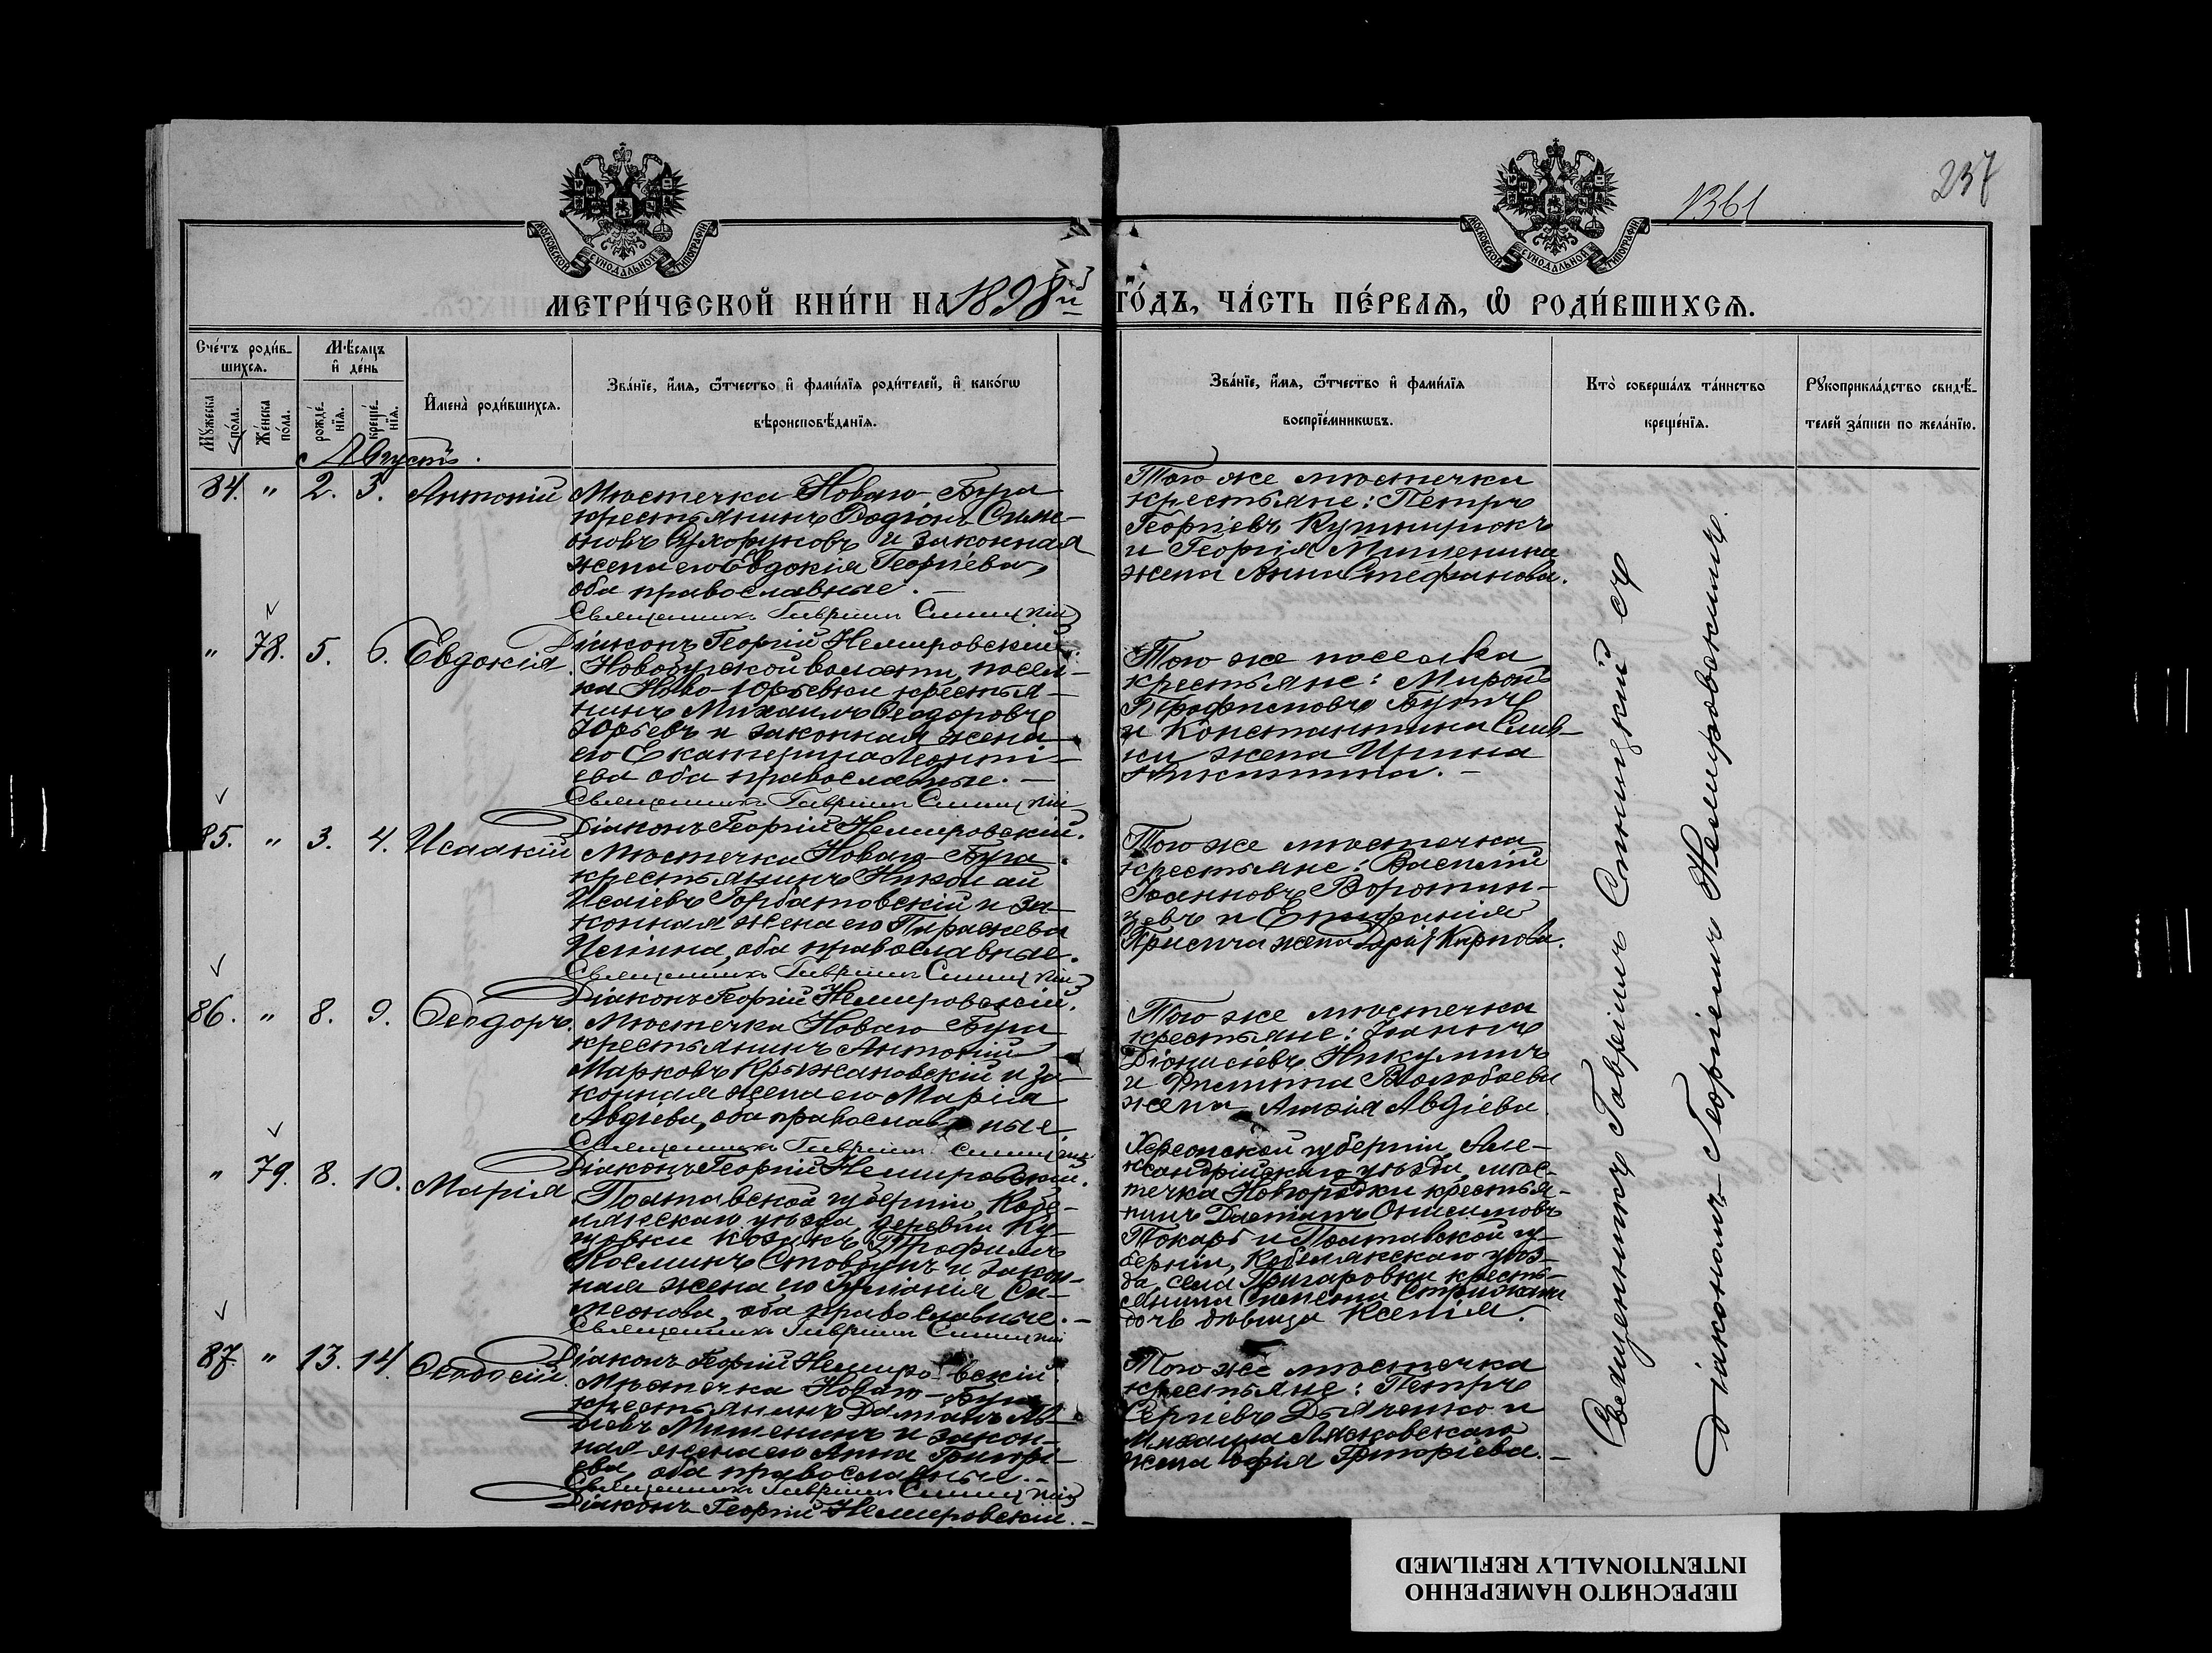 1361
237
МОСКОВСКОЙ СѴНОДАЛЬНОЙ ТИПОГРАФІИ
МОСКОВСКОЙ СѴНОДАЛЬНОЙ ТИПОГРАФІИ
МЕТРИ́ЧЕСКОЙ КНИ́ГИ НА 1898й ГО́ДЪ, ЧА́СТЬ ПЕ́РВАѦ, Ѽ РОДИ́ВШИХСѦ.
Сче́тъ роди́в-
шихсѧ.
Мѹжеска по́ла.
Же́нска по́ла.
Мѣсяцъ
и҆ де́нь
рожде́-
нїѧ.
креще́-
нїѧ.
И҆мена̀ роди́вшихсѧ.
Зва́нїе, и҆́мѧ, ѻ҆́тчество и҆ фами́лїѧ роди́телей, и҆ како́гѡ
вѣроисповѣ́данїѧ.
Зва́нїе, и҆́мѧ, ѻ҆́тчество и҆ фами́лїѧ
воспрїе́мникѡвъ.
Кто̀ соверша́лъ та́инство
креще́нїѧ.
Рꙋкоприкла́дство свидѣ́-
телей за́писи по жела́нїю.
Августъ.
84. " 2. 3. Антоній
Мѣстечка Новаго-Буга
крестьянинъ Родіонъ Симе-
оновъ Сухоруковъ и законная
жена его Евдокія Георгіева,
оба православные. –
Священникъ Гавріилъ Синицкій
Діаконъ Георгій Немировскій.
Того же мѣстечка
крестьяне: Петръ
Георгіевъ Кушнирюкъ
и Георгія Мишенина
жена Анна Стефанова.
" 78. 5. 6. Евдокія.
Новобугской волости, посел-
ка Ново-Юрьевки крестья-
нинъ Михаилъ Ѳеодоровъ
Юрьевъ и законная жена
его Екатерина Леонті-
ева оба православные. –
Священникъ Гавріилъ Синицкій
Діаконъ Георгій Немировскій.
Того же поселка
крестьяне: Миронъ
Трофимовъ
и Константина Слив-
ки жена Ирина
Никитина. –
85. " 3. 4. Исаакій
Мѣстечка Новаго-Буга
крестьянинъ Николай
Исаіевъ Горбатовскій и за-
конная жена его Параскева
оба православные.
Священникъ Гавріилъ Синицкій
Діаконъ Георгій Немировскій.
Того же мѣстечка
крестьяне: Василій
Іоанновъ Воротин-
цевъ и Епифанія
жена Дарія Карпова.
86. " 8. 9. Ѳеодоръ.
Мѣстечка Новаго Буга
крестьянинъ Антоній
Марковъ Крыжановскій и за-
конная жена его Марія
Авдіева, оба православные
Священникъ Гавріилъ Синицкій
Діаконъ Георгій Немировскій.
Того же мѣстечка
крестьяне: Іоаннъ
Діонисіевъ Никулинъ
и Филиппа Волобоева
жена Авдіева
" 79. 8. 10. Марія
Полтавской губерніи, Кобе-
лякскаго уѣзда, деревни Ку-
цовки козакъ Трофимъ
Косминъ Стовбунъ и закон-
ная жена его Си-
меонова, оба православные. –
Священникъ Гавріилъ Синицкій
Діаконъ Георгій Немировскій.
Херсонской губерніи, Але-
ксандрійскаго уѣзда, мѣс-
течка Новгородки крестья-
нинъ Даміанъ Онисимовъ
Токарь и Полтавской гу-
берніи, Кобелякскаго уѣз-
да, села Григоровки кресть-
янина
дочь дѣвица Ксенія.
87. " 13. 14. Ѳеодосій.
Мѣстечка Новаго-Буга
крестьянинъ Даміанъ Ав-
діевъ Мишенинъ и закон-
ная жена его Анна Григорі-
ева, оба православные. –
Священникъ Гавріилъ Синицкій
Діаконъ Георгій Немировскій. –
Того же мѣстечка
крестьяне: Петръ
Сергіевъ Дьяченко и
Михаила Лясковскаго
жена Софія Григоріева. –
Священникъ Гавріилъ Синицкій съ
діакономъ Георгіемъ Немировскимъ.
ПЕРЕСНЯТО НАМЕРЕННО
INTENTIONALLY REFILMED